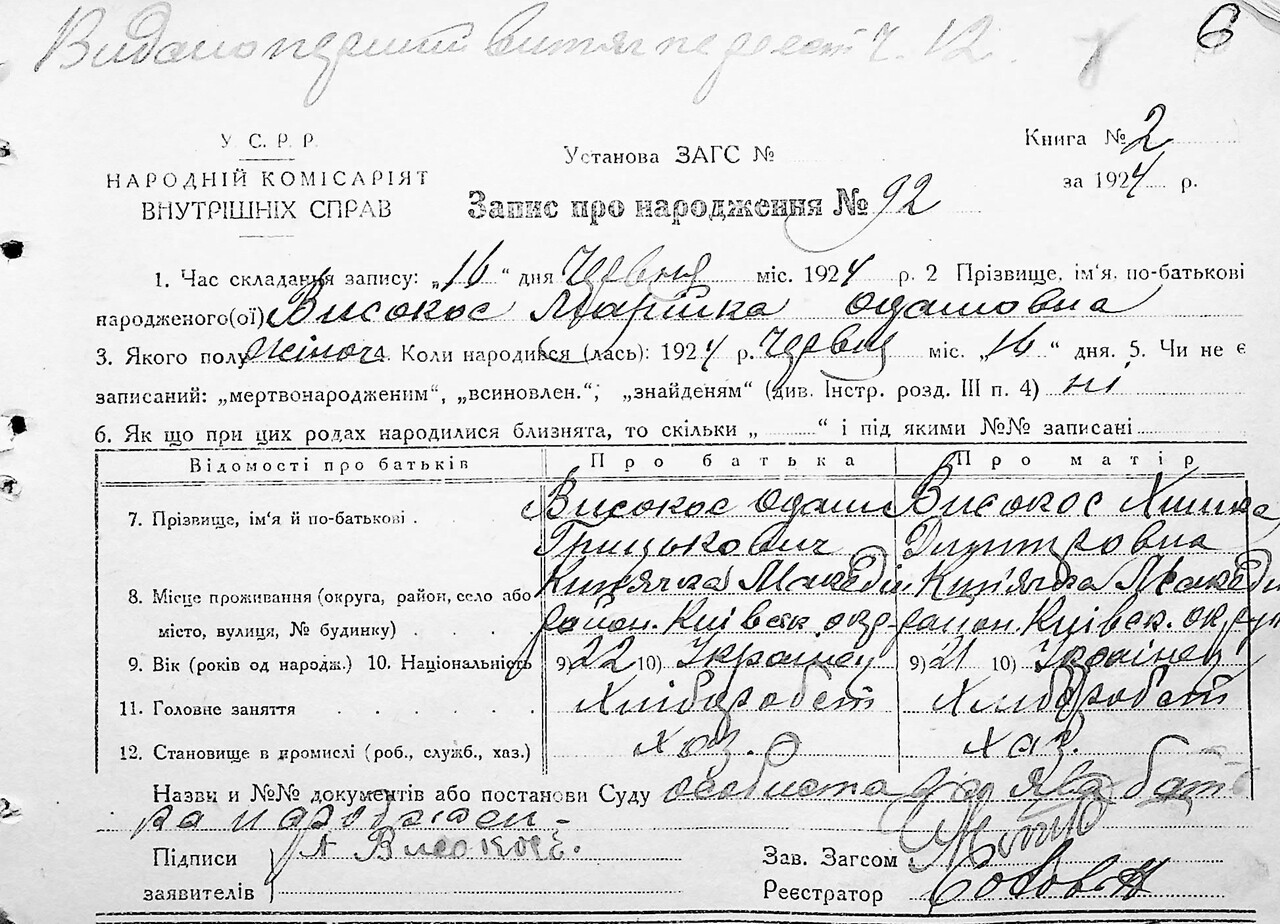 Видано перший витяг по реєст ч. 12.
6
У С. Р. Р.
НАРОДНІЙ КОМІСАРІЯТ
ВНУТРІШНІХ СПРАВ
Установа ЗАГС №
Запис про народження № 92
Книга № 2
за 1924 р.
1. Час складання запису: „16“ дня Червня міс. 1924 р. 2 Прізвище, ім'я, по-батькові
народженого(ої) Високос Марійка Одамовна
3. Якого полу жіноч 4. Коли народився (лась): 1924 р. Червня міс. „16“ дня. 5. Чи не є
записаний: „мертвонародженим“, „всиновлен.“; „знайденям“ (див. Інстр. розд. III п. 4) ні
6. Як що при цих родах народилися близнята, то скільки „ “ і під якими №№ записані
Відомості про батьків Про батька Про матір
7. Прізвище, ім'я й по-батькові . Високос Одам Високос
Грицькович Дмитровна
8. Місце проживання (округа, район, село або
місто, вулиця, № будинку) район. Київськ. окр. район. Київськ. округи
9. Вік (років од народж.) 10. Національність 9) 22 10) Українец 9) 21 10) Українец
11. Головне заняття Хлібороб Хлібороб
12. Становище в промислі (роб., служб., хаз.) хаз. хаз.
Назви и №№ документів або постанови Суду особиста заява бать
ка
Підписи Високос
заявителів
Зав. Загсом
Реєстратор